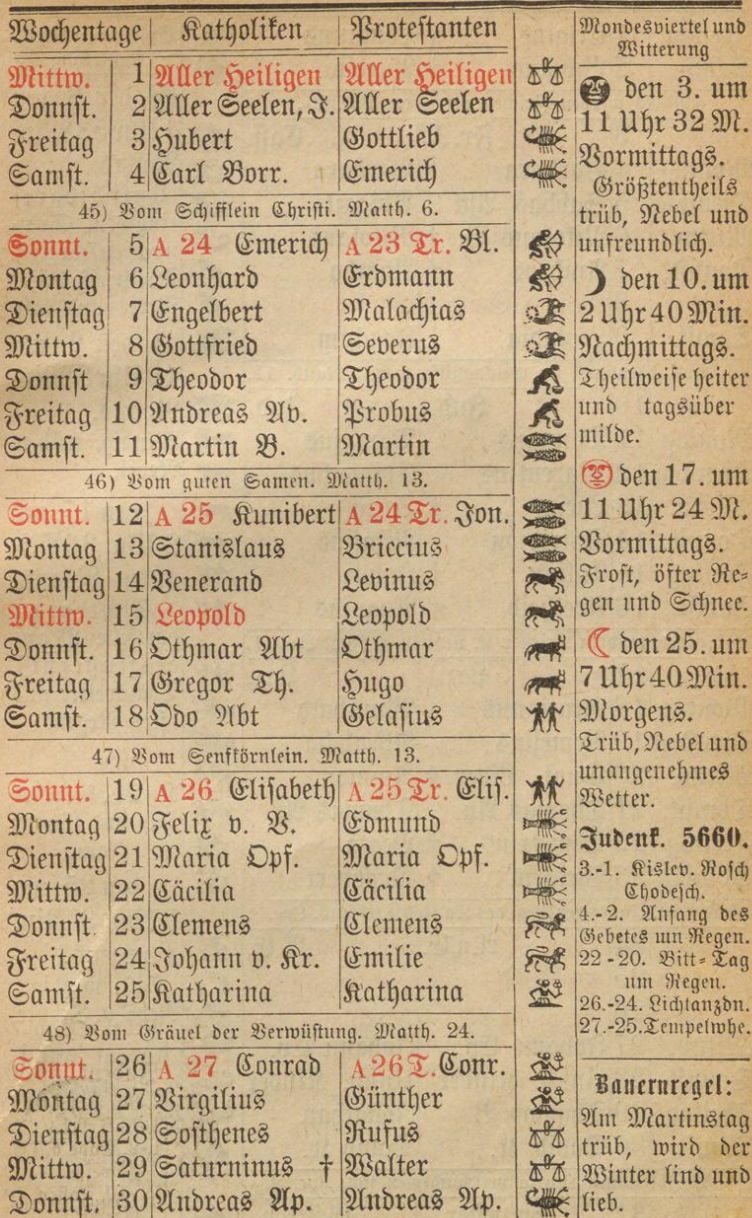 Wochentage | Katholiken | Protestanten
Mittw. 1 Aller Heiligen Aller Heiligen
Donnst. 2 Aller Seelen, J. Aller Seelen
Freitag 3 Hubert Gottlieb
Samst. 4 Carl Borr. Emerich
45) Vom Schifflein Christi. Matth. 6.
Sonnt. 5 A 24 Emerich A 23 Tr. Bl.
Montag 6 Leonhard Erdmann
Dienstag 7 Engelbert Malachias
Mittw. 8 Gottfried Severus
Donnst 9 Theodor Theodor
Freitag 10 Andreas Av. Probus
Samst. 11 Martin B. Martin
46) Vom guten Samen. Matth. 13.
Sonnt. 12 A 25 Kunibert A 24 Tr. Jon.
Montag 13 Stanislaus Briccius
Dienstag 14 Venerand Levinus
Mittw. 15 Leopold Leopold
Donnst. 16 Othmar Abt Othmar
Freitag 17 Gregor Th. Hugo
Samst. 18 Odo Abt Gelasius
47) Vom Senfkörnlein. Matth. 13.
Sonnt. 19 A 26 Elisabeth A 25 Tr. Elis.
Montag 20 Felix v. V. Edmund
Dienstag 21 Maria Opf. Maria Opf.
Mittw. 22 Cäcilia Cäcilia
Donnst. 23 Clemens Clemens
Freitag 24 Johann v. Kr. Emilie
Samst. 25 Katharina Katharina
48) Vom Gräuel der Verwüstung. Matth. 24.
Sonnt. 26 A 27 Conrad A 26 T. Conr.
Montag 27 Virgilius Günther
Dienstag 28 Sosthenes Rufus
Mittw. 29 Saturninus † Walter
Donnst. 30 Andreas Ap. Andreas Ap.
Mondesviertel und
Witterung
den 3. um
11 Uhr 32 M.
Vormittags.
Größtentheils
trüb, Nebel und
unfreundlich.
den 10. um
2 Uhr 40 Min.
Nachmittags.
Theilweise heiter
und tagsüber
milde.
den 17. um
11 Uhr 24 M.
Vormittags.
Frost, öfter Re-
gen und Schnee.
den 25. um
7 Uhr 40 Min.
Morgens.
Trüb, Nebel und
unangenehmes
Wetter.
Judenk. 5660.
3.-1. Kislev. Rosch
Chodesch.
4.-2. Anfang des
Gebetes um Regen.
22-20. Bitt-Tag
um Regen.
26.-24. Lichtanzdn.
27.-25. Tempelwhe.
Bauernregel:
Am Martinstag
trüb, wird der
Winter lind und
lieb.